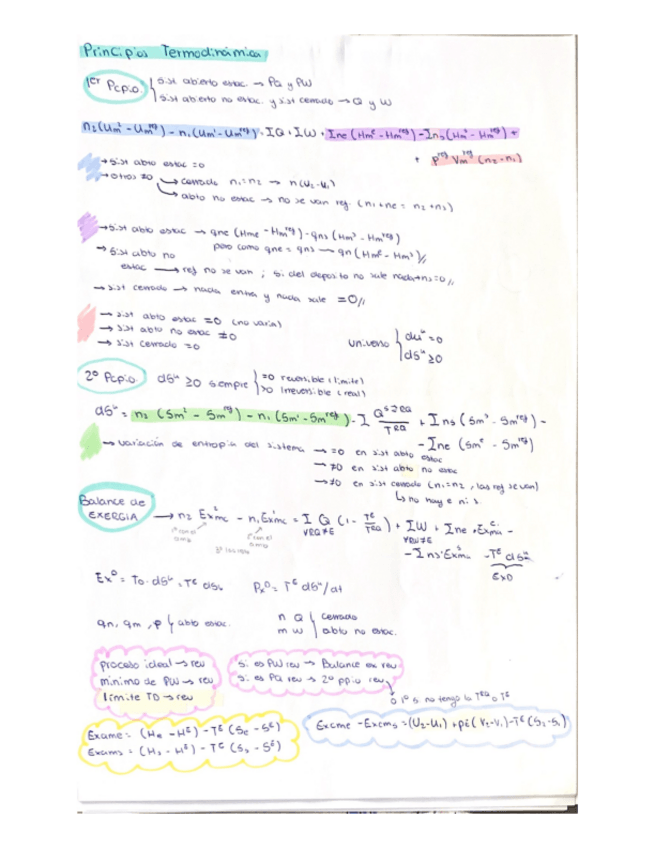 Principios Termodinámica
1er Pcpio. { sist abierto estac. → PQ y PW
sist abierto no estac. y sist cerrado → Q y W
n2(Um² - Um^ref) - n1(Um¹ - Um^ref) = ΣQ + ΣW + Σne (Hm^e - Hm^ref) - Σns (Hm^s - Hm^ref) +
+ p^ref Vm^ref (n2 - n1)
→ sist abto estac = 0
→ otros ≠0 → cerrado n1=n2 → n(U2-U1)
→ abto no estac → no se van ref. (n1+ne = n2+ns)
→ sist abto estac → qne (Hme - Hm^ref) - qns (Hm^s - Hm^ref)
pero como qne = qns → qn (Hm^e - Hm^s)//
→ sist abto no
estac → ref no se van ; si del deposito no sale nada → ns=0//
→ sist cerrado → nada entra y nada sale = 0//
→ sist abto estac = 0 (no varia)
→ sist abto no estac ≠0
→ sist cerrado = 0
universo { du^u = 0
dS^u ≥ 0
2º Pcpio. dS^u ≥ 0 siempre { =0 reversible (limite)
>0 irreversible (real)
dS^u = n2 (Sm² - Sm^ref) - n1 (Sm¹ - Sm^ref) - Σ Q^S→RQ / T^RQ + Σns (Sm^s - Sm^ref) -
- Σne (Sm^e - Sm^ref)
→ variación de entropia del sistema → =0 en sist abto estac
→ ≠0 en sist abto no estac
→ ≠0 en sist cerrado (n1=n2, las ref se van)
↳ no hay e ni s.
Balance de
EXERGIA → n2 Ex²mc - n1 Ex¹mc = Σ Q (1 - T^E/T^RQ) + ΣW + Σne · Ex^e ma -
∀RQ≠E ∀RW≠E
- Σns · Ex^s ma - T^E dS^u
ExD
Ex^D = To · dS^u = T^E dS^u Px^D = T^E dS^u/dt
qn, qm, P { abto estac.
n Q { cerrado
m W abto no estac.
proceso ideal → rev
minimo de PW → rev
limite TD → rev
si es PW rev → Balance ex rev
si es PQ rev → 2º ppio rev
o 1º si no tengo la T^RQ o T^E
Exame = (He - H^E) - T^E (Se - S^E)
Exams = (Hs - H^E) - T^E (Ss - S^E)
Excme - Excms = (U2-U1) + pE (V2-V1) - T^E (S2-S1)